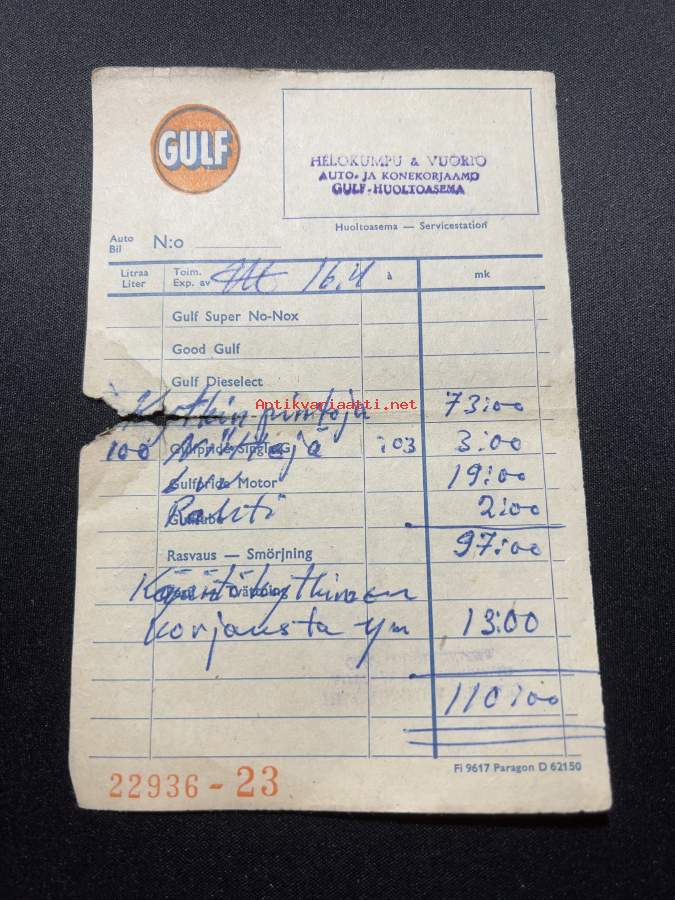 GULF
HELOKUMPU & VUORIO
AUTO- JA KONEKORJAAMO
GULF-HUOLTOASEMA
Huoltoasema — Servicestation
Auto
Bil
N:o
Litraa
Liter
Toim.
Exp. av
16.4
à
mk
Gulf Super No-Nox
Good Gulf
Gulf Dieselect
Antikvariaatti.net
Kytkin pintoja 73:00
100 Niittejä :03 3:00
Gulfpride Single G
Gulfpride Motor 19:00
Pultti 2:00
Gulflube
Rasvaus — Smörjning 97:00
Tvättning
Korjausta ym 13:00
110:00
Fi 9617 Paragon D 62150
22936 - 23